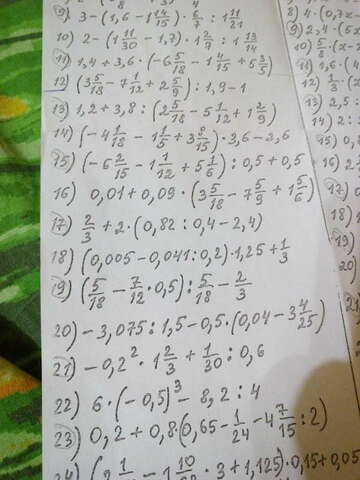 9) 3-(1,6-1 14/15)·6/7:1 11/21
10) 2-(1 11/30-1,7)·1 2/9:1 13/14
11) 1,4+3,6·(-6 5/18-1 4/15+5 3/5)
12) (3 5/18-7 1/12+2 5/9):1,9-1
13) 1,2+3,8:(2 5/18-5 1/12+1 2/9)
14) (-4 1/18-1 1/5+3 8/15)·3,6-2,6
15) (-6 2/15-1 1/12+5 1/6):0,5+0,5
16) 0,01+0,09·(3 5/18-7 5/9+1 5/6)
17) 2/3+2·(0,82:0,4-2,4)
18) (0,005-0,041:0,2)·1,25+1/3
19) (5/18-7/12·0,5):5/18-2/3
20) -3,075:1,5-0,5·(0,04-3 4/25)
21) -0,2²·1 2/3+1/30:0,6
22) 6·(-0,5)³-8,2:4
23) 0,2+0,8·(0,65-1/24-4 7/15:2)
·3+1,125)·0,15+0,05
8) 4·(0,7
9) 2,4·(5
10) 5/8·(
11) 1,6·(4
12) 1/3·(
13) 2,5
14) 2:
15)
16) 2,7
17)
18)
19)
20)